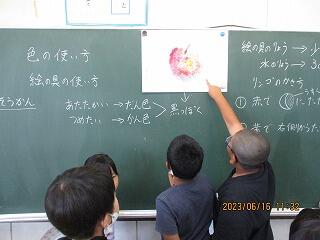 色の使い方
絵の具の使い方
そうかん
あたたかい→だん色
つめたい→かん色
>黒っぽく
絵の具のりょう→少
水のりょう→
リンゴのかき方
①赤で
②茶で右側からた
2023/06/16 11:32